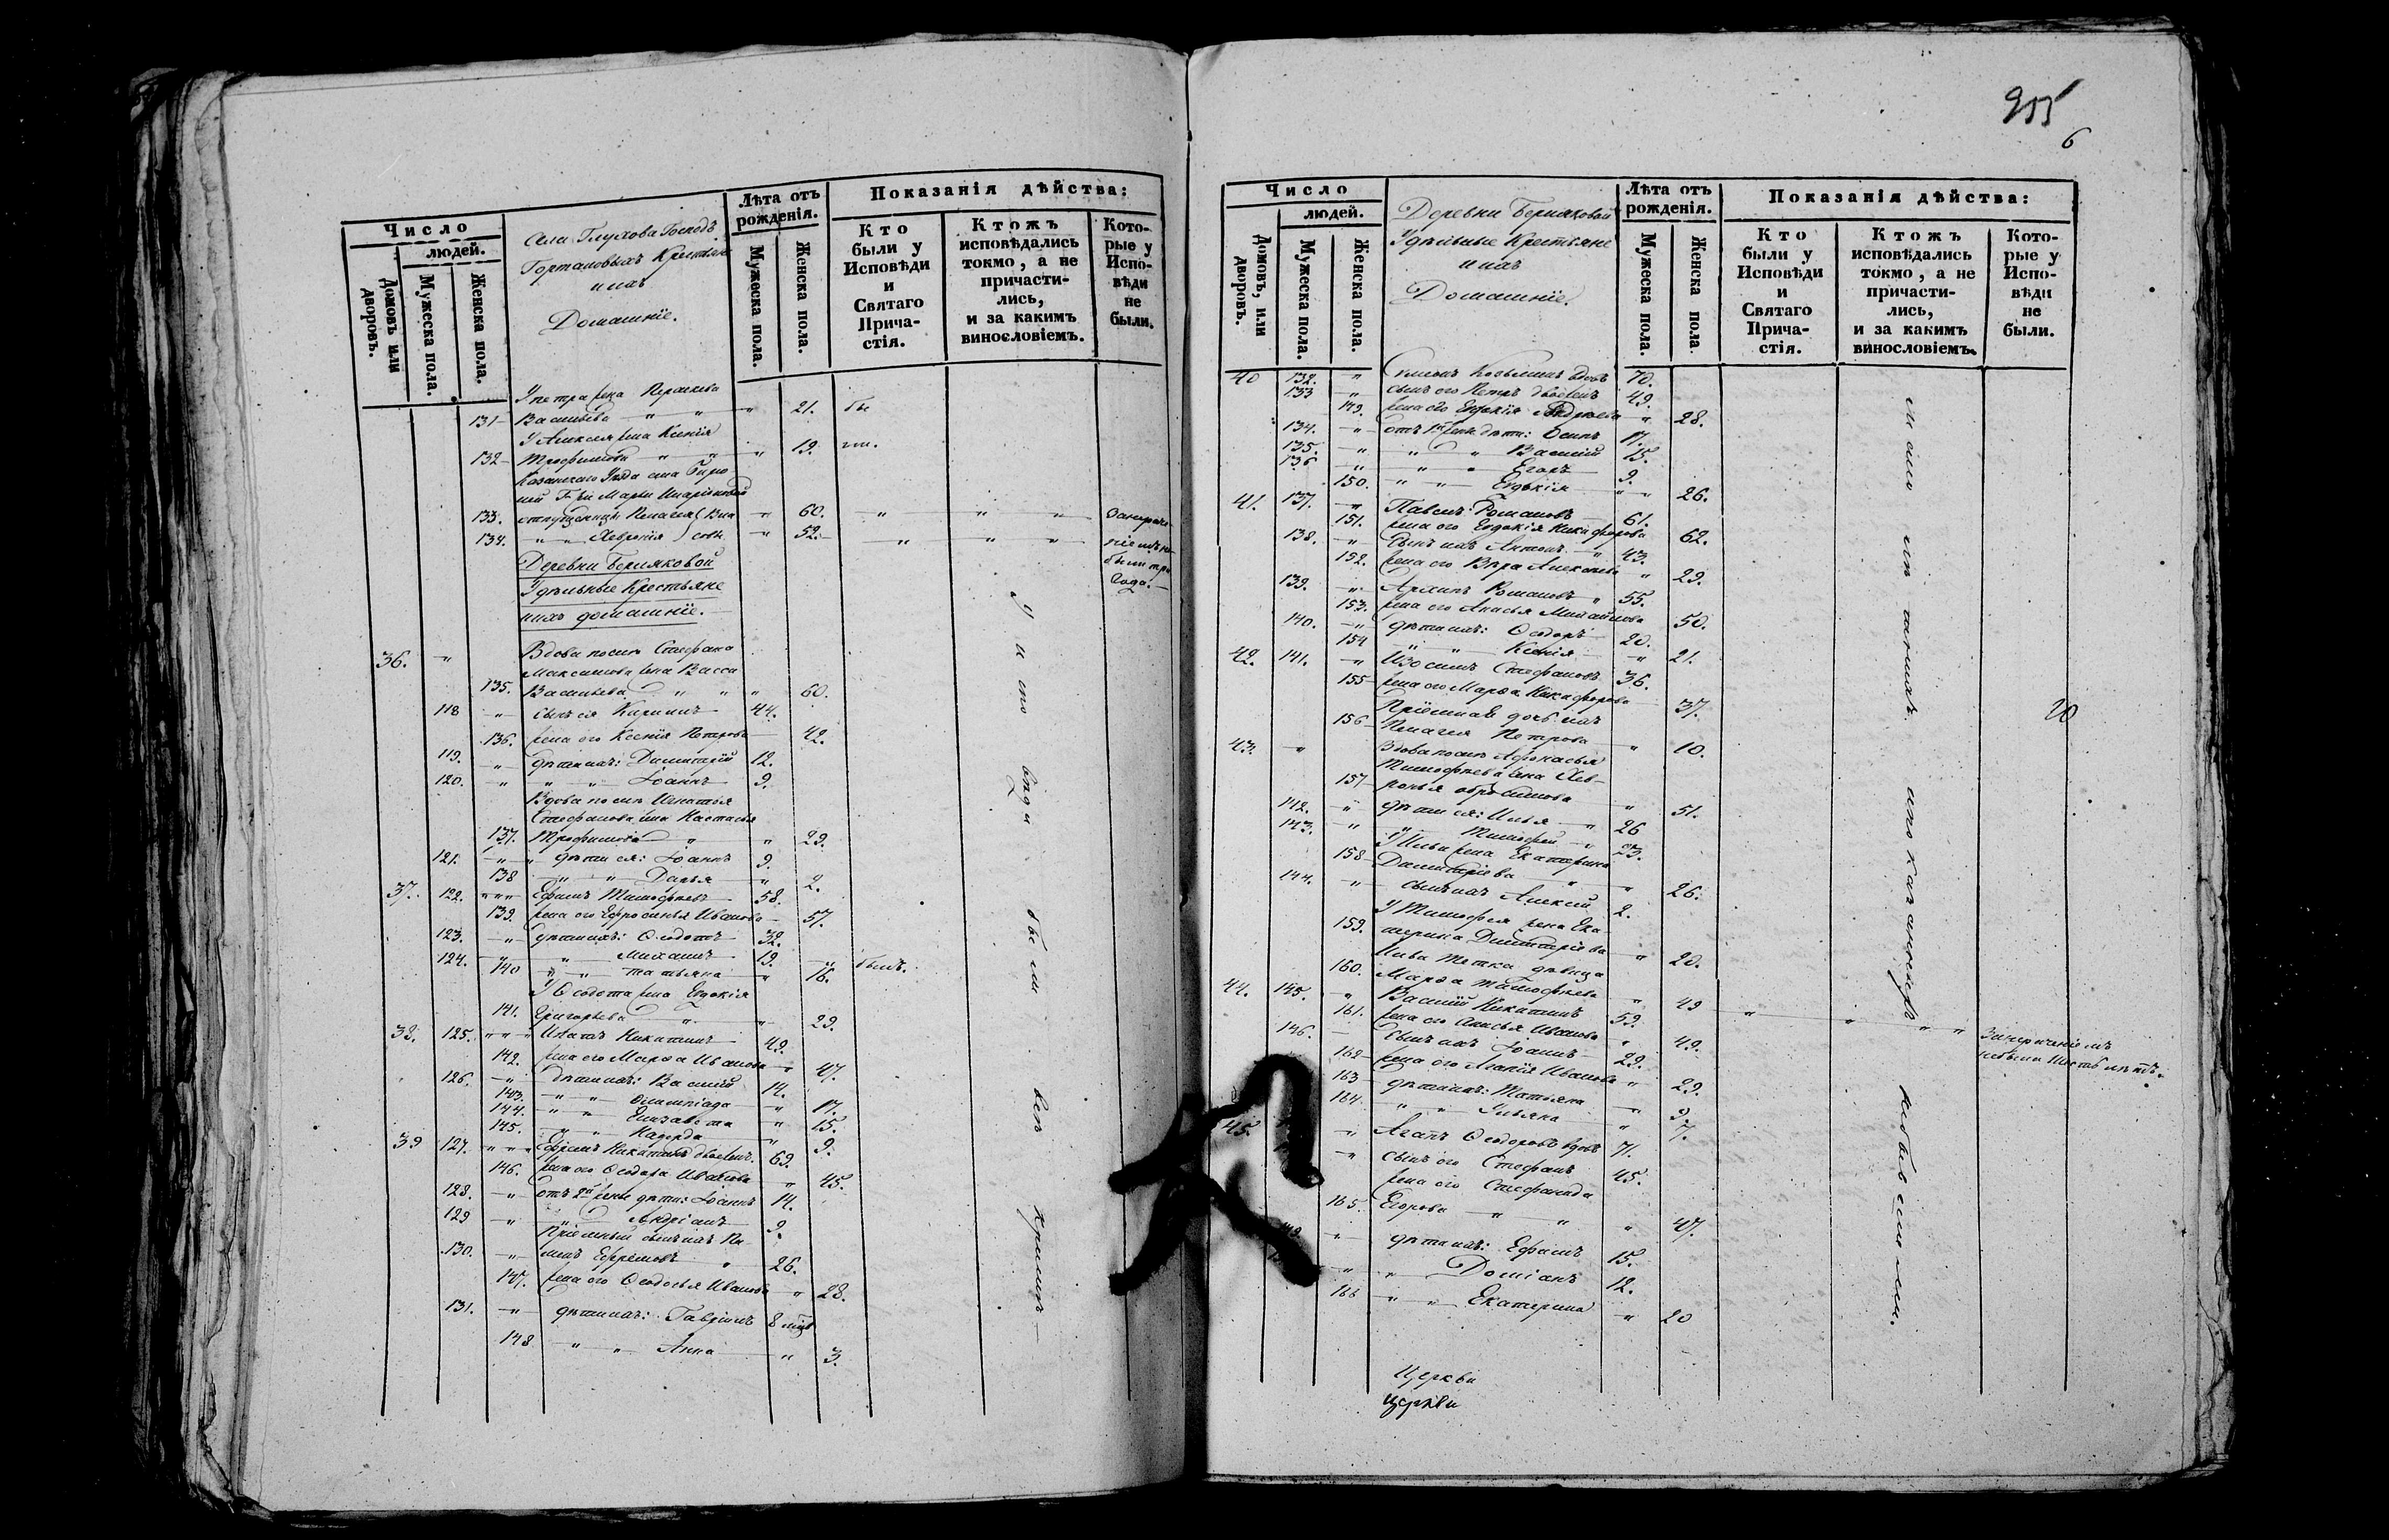 Число
людей.
Домовъ или дворовъ.
Мужеска пола.
Женска пола.
Села Глухова Господъ
Крестьяне
и ихъ
Домашніе.
Лѣта отъ рожденія.
Мужеска пола.
Женска пола.
Показанія дѣйства:
Кто были у Исповѣди и Святаго Прича-стія.
Ктожъ исповѣдались токмо, а не причасти-лись, и за какимъ винословіемъ.
Кото-рые у Испо-вѣди не были.
У Петра жена
131 Васильева " " " 21. бы
У Алексея жена Ксенія
132 Трофимова " " " 19. ли.
133. Пелагея " 60. " " "
134. " " Хеврония " 52. " " "
Деревни Беряковой
Удѣльные Крестьяне
и ихъ домашніе.
36. " Вдова послѣ Стефана
Максимова жена Васса
135. Васильева " " " 60.
118 " сынъ ея Кирилъ 44.
136. жена его Ксенія Петрова 42.
119. " дѣти ихъ: Димитрій 12.
120. " " " Іоаннъ 9.
Вдова послѣ Игнатья
Стефанова жена Настасья
137. Трофимова " " 29.
121. " " дѣти ея: Іоаннъ 9.
138 " " Дарья " 2.
37. 122. " " " Ефимъ Тимофѣевъ 58.
139. жена его Ефросинья Иванова 57.
123. " дѣти ихъ: Ѳеодотъ 32.
124. " " Михаилъ 19.
140 " " Татьяна " 16. былъ.
У Ѳеодота жена Евдокія
141. Григорьева " " 29.
38. 125. " " " Игнатъ Никитинъ 49.
142. жена его Марѳа Иванова " 47.
126. " дѣти ихъ: Василій 14.
143. " " Олимпіада " 17.
144. " " Елизавета " 15.
145. " " Надежда " 9.
39 127. " " " Ефремъ Никитинъ двоежен. 69.
146. жена его Ѳеодора Иванова " 45.
128. " отъ 2й жены дѣти: Іоаннъ 14.
129 " " Андріанъ 9.
Пріемный сынъ ихъ Пи
130. " менъ Ефремовъ " 26.
147. жена его Ѳеодосья Иванова " 28.
131. " дѣти ихъ: Гавріилъ 8 мѣс
148 " " Анна " 3.
255
6
Число
людей.
Домовъ, или дворовъ.
Мужеска пола.
Женска пола.
Деревни Беряковой
Удѣльные Крестьяне
и ихъ
Домашніе.
Лѣта отъ рожденія.
Мужеска пола.
Женска пола.
Показанія дѣйства:
Кто были у Исповѣди и Святаго Прича-стія.
Ктожъ исповѣдались токмо, а не причасти-лись, и за какимъ винословіемъ.
Кото-рые у Испо-вѣди не были.
40 132. " Козьминъ вдовъ 70.
133 " сынъ его Петръ двоежен 49.
149. жена его Евдокія " 28.
134. " отъ 1й жены дѣти: Осипъ 17.
135. " " " Василій 15.
136 " " " Егоръ 9.
150. " " Евдокія " " 26.
41. 137. " Павелъ Романовъ 61.
151. жена его Евдокія Никифорова 62.
138. " Сынъ ихъ Антонъ " 43.
152. жена его Вѣра Алексѣева " 29.
139. " Архипъ Романовъ " 55.
153. жена его Анисья Михайлова 50.
140. " дѣти ихъ: Ѳеодоръ 20.
154 " " Ксенія " 21.
42. 141. " Изосимъ Стефановъ 36.
155 жена его Марѳа Никифорова 37.
Пріемная дочь ихъ
156 Пелагея Петрова " 10.
43. " Вдова послѣ Афонасья
Тимофѣева жена Хев-
157 ронья Обросимова " 51.
142. " дѣти ея: Илья " 26
143. " " Тимофей " 23.
У Ильи жена Екатерина
158 Димитріева " " 26.
144. " сынъ ихъ Алексѣй 2.
У Тимофея жена Ека-
159. терина Димитріева " 20.
Ильи тетка дѣвица
160. Марѳа Тимофѣева " 49 " " " "
44. 145. " Василій Никитинъ 52.
161. жена его Анисья Иванова " 49.
146. сынъ ихъ Іоаннъ 29.
162 жена его Агапія Иванова " 29.
163 дѣти ихъ: Татьяна " 9.
164. " " Ульяна " 7.
45. " Агапъ Ѳеодоровъ вдовъ 71.
" сынъ его Стефанъ 45.
жена его Степанида
165. Егорова " " " 47.
" дѣти ихъ: Ефимъ 15.
" " Доміанъ 12.
166 " " Екатерина " 20
не были шесть лѣтъ.
Церкви
церкви